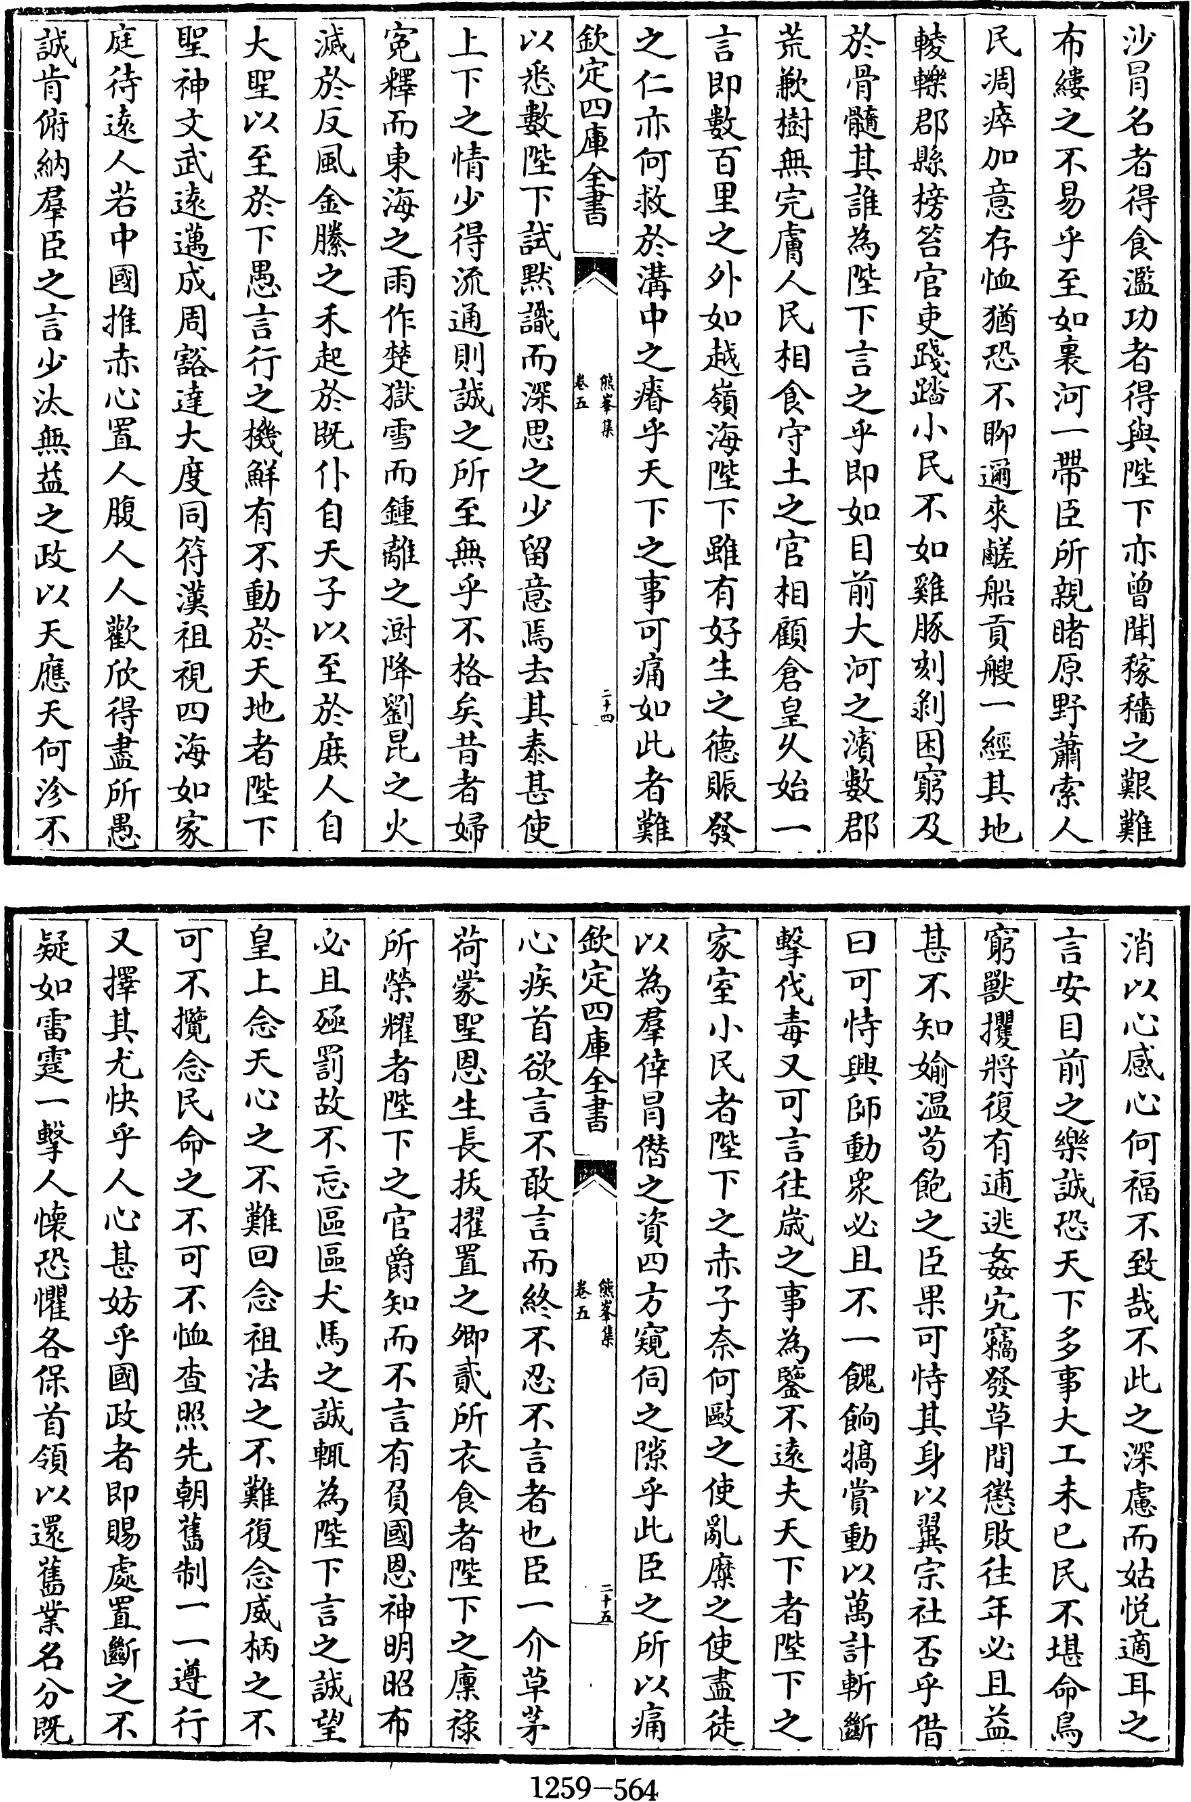 沙冐名者得食濫功者得與陛下亦曾聞稼穡之艱難
布縷之不易乎至如裏河一帶臣所親睹原野蕭索人
民凋瘁加意存恤猶恐不聊邇來鹺船貢艘一經其地
輘轢郡縣榜笞官吏踐踏小民不如雞豚刻剥困窮及
於骨髓其誰為陛下言之乎即如目前大河之濱數郡
荒歉樹無完膚人民相食守土之官相顧倉皇乆始一
言即數百里之外如越嶺海陛下雖有好生之德賑發
之仁亦何救於溝中之瘠乎天下之事可痛如此者難
欽定四庫全書
熊峯集
卷五
二十四
以悉數陛下試默識而深思之少留意焉去其泰甚使
上下之情少得流通則誠之所至無乎不格矣昔者婦
寃釋而東海之雨作楚獄雪而鍾離之澍降劉昆之火
滅於反風金縢之禾起於既仆自天子以至於庻人自
大聖以至於下愚言行之機鮮有不動於天地者陛下
聖神文武遠邁成周豁達大度同符漢祖視四海如家
庭待遠人若中國推赤心置人腹人人歡欣得盡所愚
誠肯俯納羣臣之言少汰無益之政以天應天何沴不
消以心感心何福不致哉不此之深慮而姑悦適耳之
言安目前之樂誠恐天下多事大工未已民不堪命鳥
窮獸攫將復有逋逃姦宄竊發草間懲敗往年必且益
甚不知媮温苟飽之臣果可恃其身以翼宗社否乎借
曰可恃興師動衆必且不一餽餉犒賞動以萬計斬斷
擊伐毒又可言往歲之事為鑒不遠夫天下者陛下之
家室小民者陛下之赤子奈何毆之使亂糜之使盡徒
以為羣倖冐僭之資四方窺伺之隙乎此臣之所以痛
欽定四庫全書
熊峯集
卷五
二十五
心疾首欲言不敢言而終不忍不言者也臣一介草茅
荷蒙聖恩生長抜擢置之卿貳所衣食者陛下之廪禄
所榮耀者陛下之官爵知而不言有負國恩神明昭布
必且殛罰故不忘區區犬馬之誠輒為陛下言之誠望
皇上念天心之不難回念祖法之不難復念威柄之不
可不攬念民命之不可不恤查照先朝舊制一一遵行
又擇其尤快乎人心甚妨乎國政者即賜處置斷之不
疑如雷霆一擊人懷恐懼各保首領以還舊業名分既
1259-564